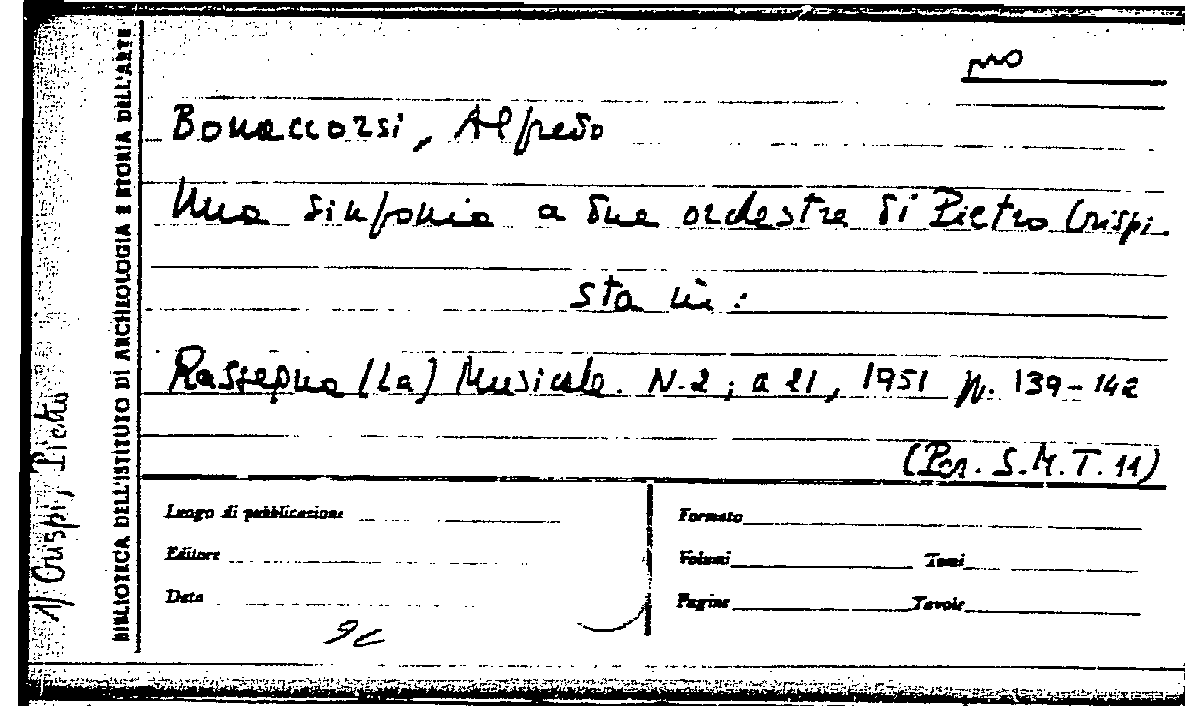 Bonaccorsi, Alfredo
Una sinfonia a due orchestre di Pietro Crispi.
sta in:
Rassegna (La) Musicale. N.2; a 21, 1951 p. 139-142
(Per. S.M.T. 11)
Luogo di pubblicazione
Editore
Data
Formato
Volumi Tomi
Pagine Tavole
BIBLIOTECA DELL'ISTITUTO DI ARCHEOLOGIA E STORIA DELL'ARTE
1) Crispi, Pietro